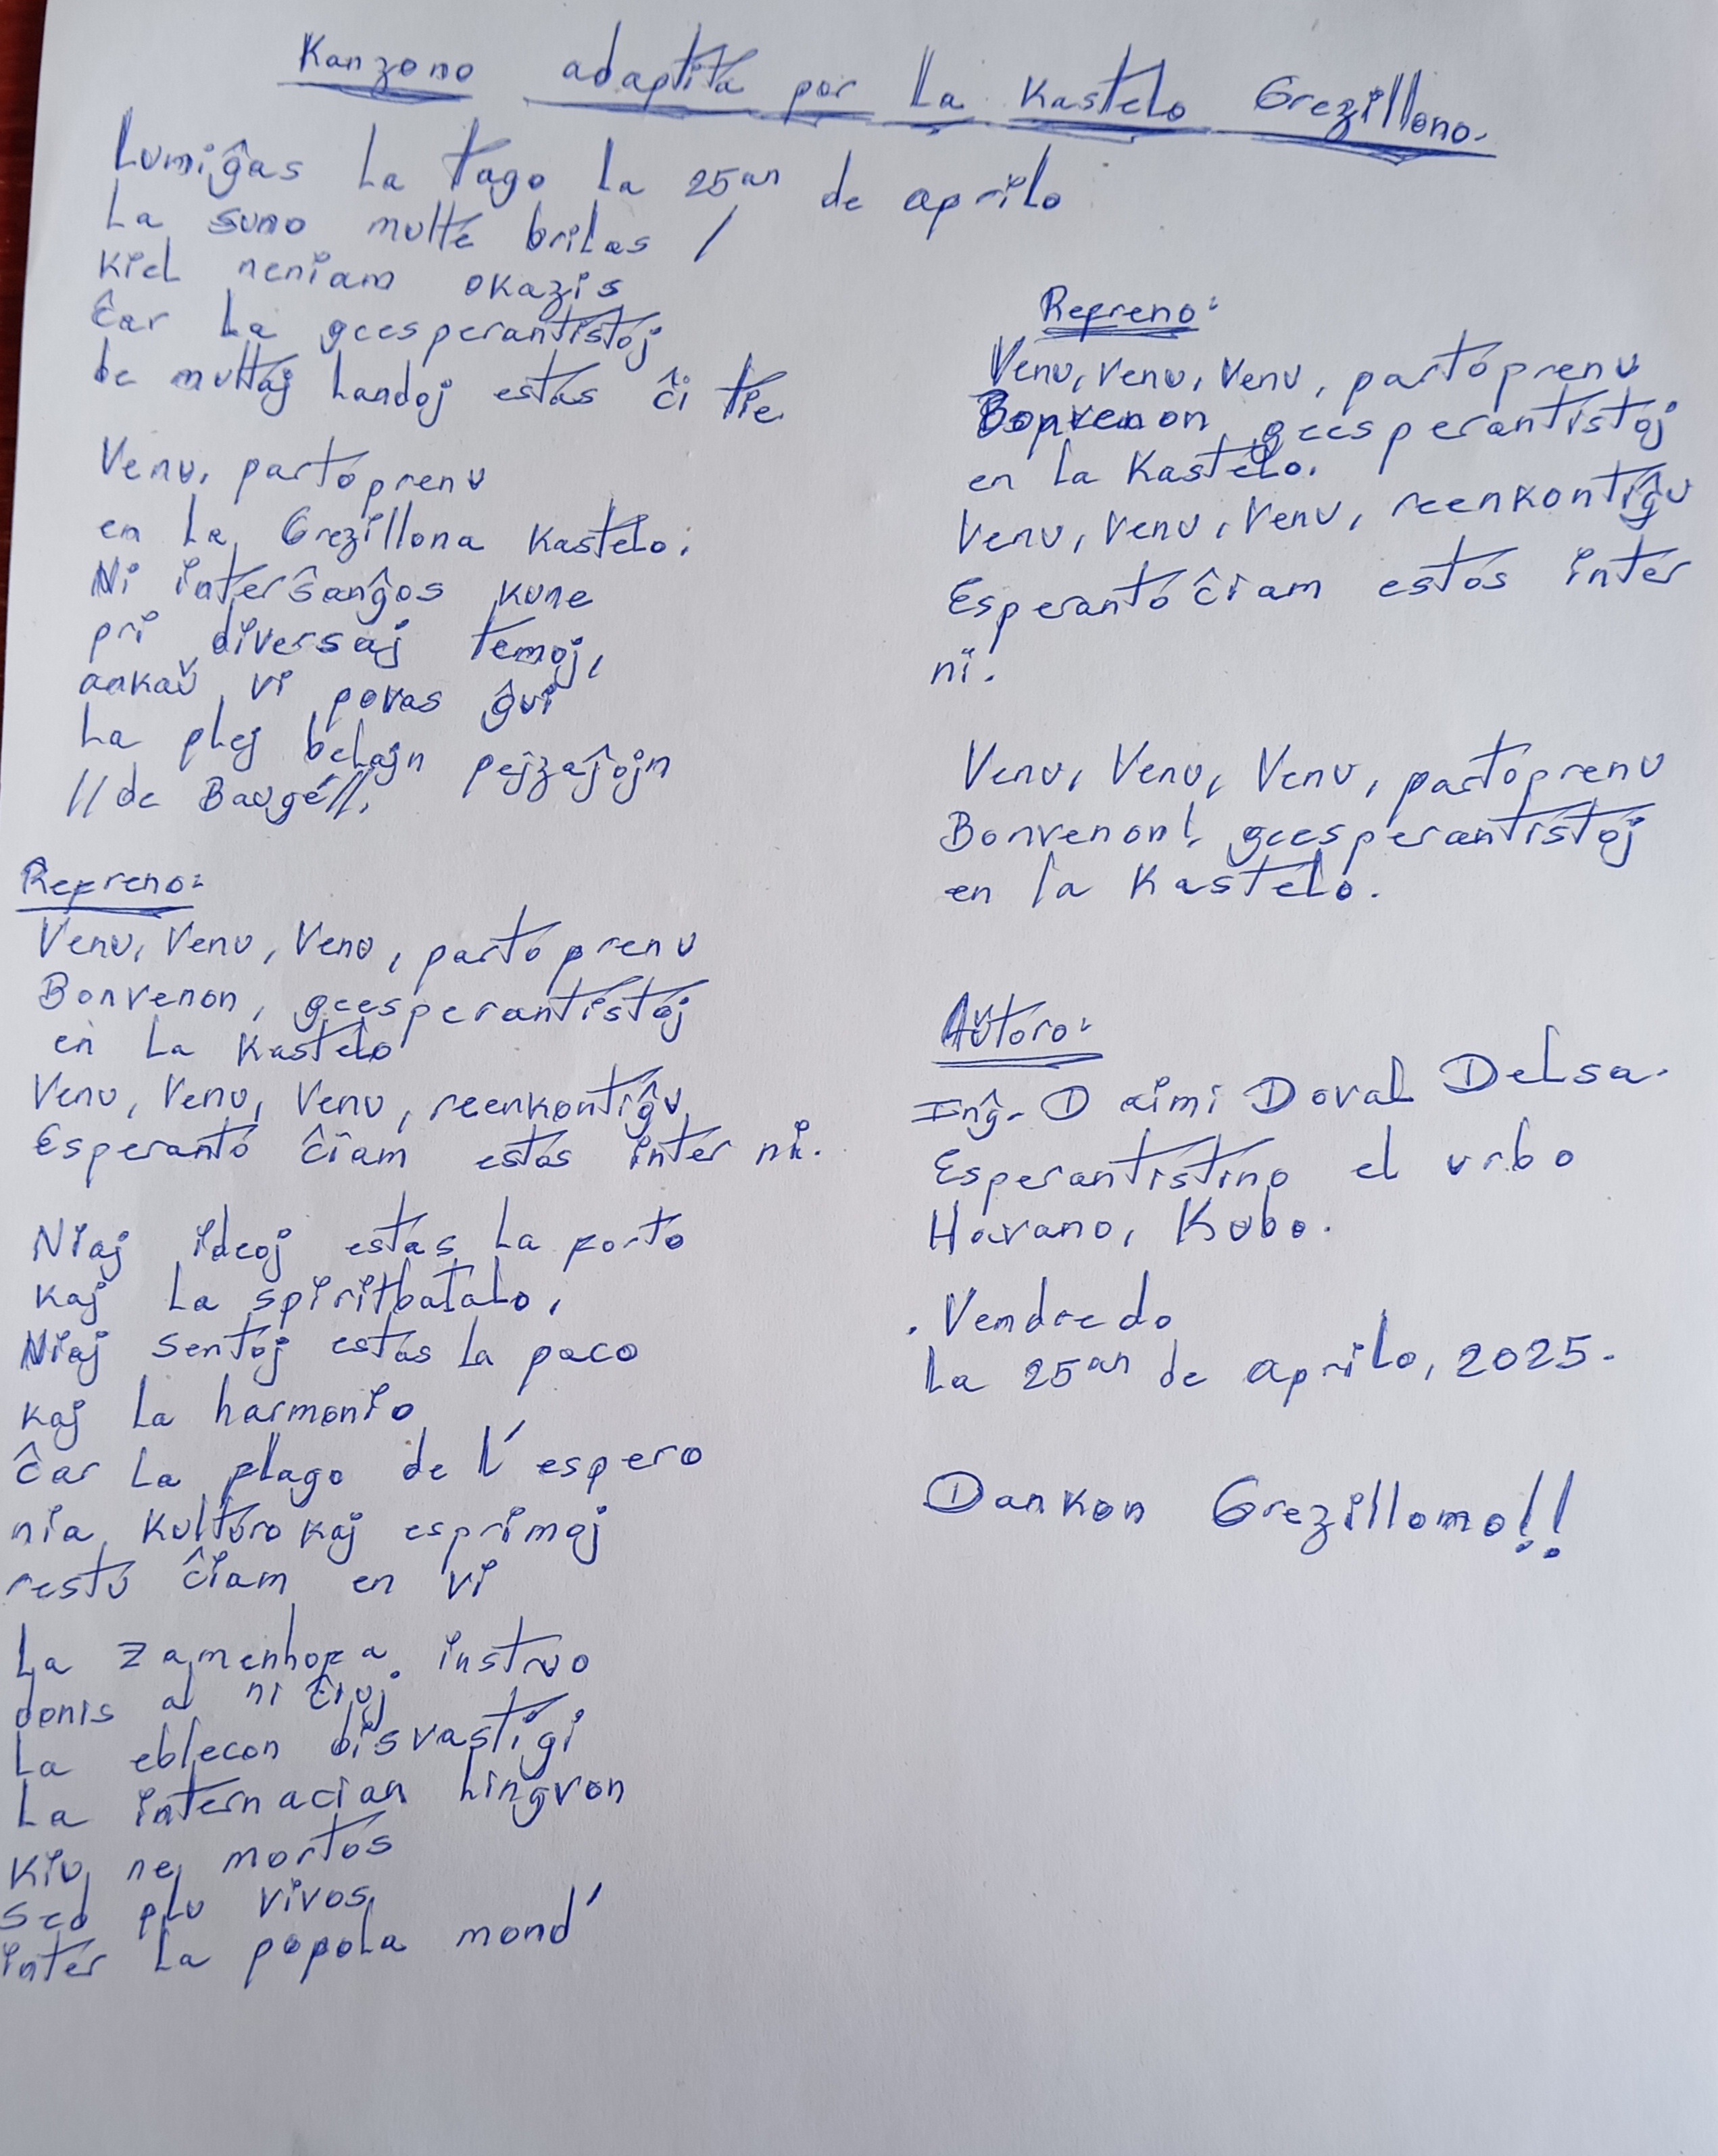 Kanzono adaptita por La Kastelo Grezillono.
Lumiĝas La Tago La 25an de aprilo
La suno multe brilas /
kiel neniam okazis
ĉar La geesperantistoj
de multaj Landoj estas ĉi tie.
Venu, partoprenu
en La Grezillona Kastelo.
Ni interŝanĝos kune
pri diversaj temoj,
ankaŭ vi povas ĝui
La plej belajn pejzaĵojn
// de Baugé //.
Refreno:
Venu, Venu, Venu, partoprenu
Bonvenon, geesperantistoj
en La Kastelo
Venu, Venu, Venu, reenkontiĝu
Esperanto ĉiam estos inter ni.
Niaj ideoj estas La forto
kaj La spiritbatalo,
Niaj sentoj estas la paco
kaj La harmonio
Ĉar La flago de L' espero
nia kulturo kaj esprimoj
restu ĉiam en vi
La Zamenhofa instruo
donis al ni ĉiuj
La eblecon disvastigi
La internacian Lingvon
Kiu ne mortos
sed plu vivos,
inter La popola mond'
Refreno:
Venu, Venu, Venu, partoprenu
Bonvenon geesperantistoj
en la Kastelo.
Venu, Venu, Venu, reenkontiĝu
Esperanto ĉiam estos inter
ni.
Venu, Venu, Venu, partoprenu
Bonvenon! geesperantistoj
en la Kastelo.
Aŭtoro:
Inĝ. Daimi Doval Delsa.
Esperantistino el urbo
Havano, Kubo.
. Vendredo
La 25an de aprilo, 2025.
Dankon Grezillomo!!